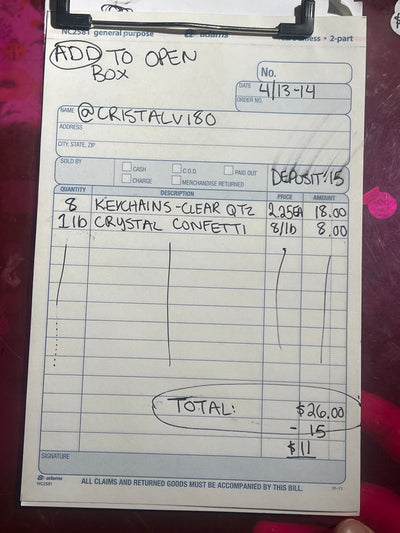 NC2581 general purpose adams • 2-part
ADD TO OPEN
BOX
No.
DATE 4/13-14
ORDER NO.
NAME @CRISTALV180
ADDRESS
CITY, STATE, ZIP
SOLD BY
CASH C.O.D. PAID OUT
CHARGE MERCHANDISE RETURNED
DEPOSIT:15
QUANTITY DESCRIPTION PRICE AMOUNT
8 KEYCHAINS-CLEAR QTZ 2.25EA 18.00
1 lb CRYSTAL CONFETTI 8/lb 8.00
TOTAL: $26.00
- 15
$11
SIGNATURE
adams
NC2581
ALL CLAIMS AND RETURNED GOODS MUST BE ACCOMPANIED BY THIS BILL.